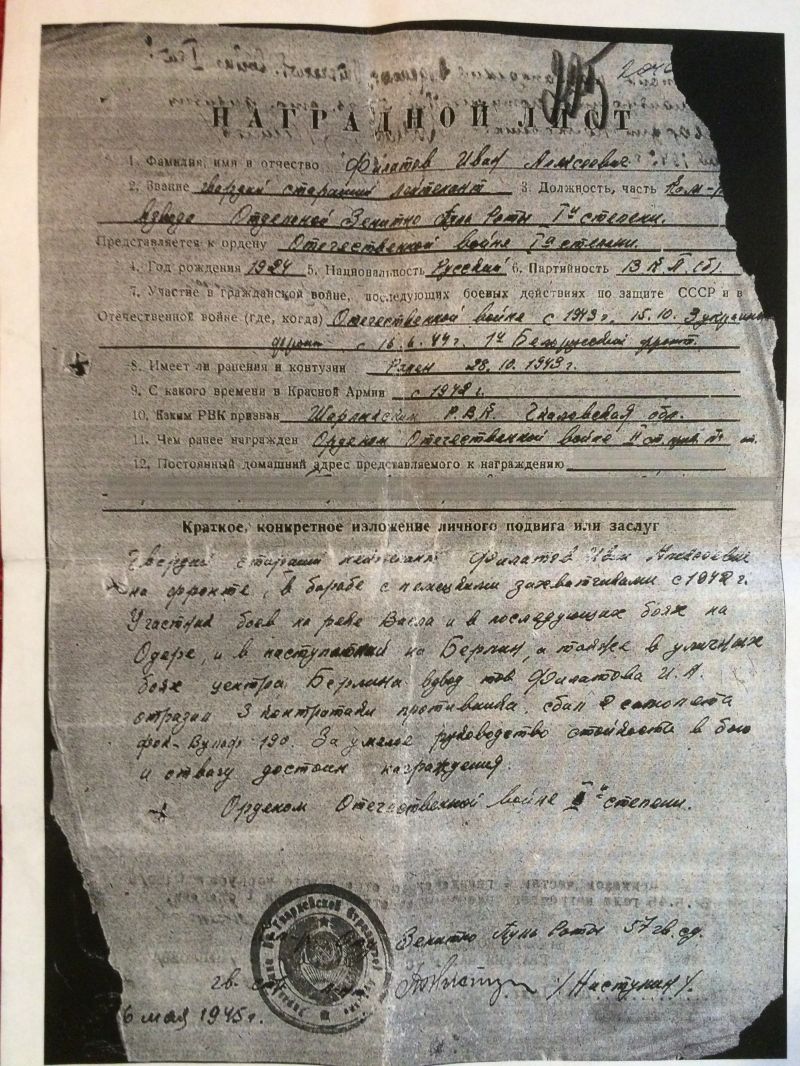 НАГРАДНОЙ ЛИСТ
1. Фамилия, имя и отчество Филатов Иван Алексеевич
2. Звание гвардии старший лейтенант 3. Должность, часть Ком-р
взвода Отдельной Зенитно Пуль Роты
Представляется к ордену Отечественной войне I й степени.
4. Год рождения 1924 5. Национальность Русский 6. Партийность ВКП(б)
7. Участие в гражданской войне, последующих боевых действиях по защите СССР и в
Отечественной войне (где, когда) Отечественной войне с 1943г. 15.10. 3 украинс
фронт с 16.6.44г. 1й Белорусский фронт.
8. Имеет ли ранения и контузии Ранен 28.10.1943г.
9. С какого времени в Красной Армии с 1942г.
10. Каким РВК призван Р.В.К. Чкаловская обл.
11. Чем ранее награжден Орденом Отечественной войне II ст.
12. Постоянный домашний адрес представляемого к награждению
Краткое, конкретное изложение личного подвига или заслуг
Гвардии старший лейтенант Филатов Иван Алексеевич
на фронте, в борьбе с немецкими захватчиками с 1942г.
Участник боев на реке Висла и в последующих боях на
Одере, и в наступлений на Берлин, а также в уличных
боях центра Берлина взвод тов Филатова И.А.
отразил 3 контратаки противника, сбил 2 самолета
фок-Вульф-190. За умелое руководство стойкость в бою
и отвагу достоин награждения.
Орденом Отечественной войне степени.
Зенитно Пуль Роты 57 гв.сд.
гв. ст. /Наступин/.
6 мая 1945г.